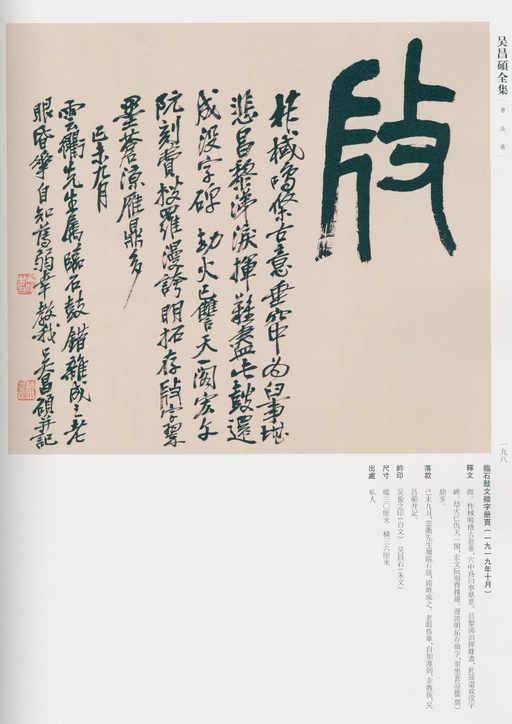 吴昌碩全集
書法卷
一九八
柞棫鳴條古意垂穴中為臼事堪
悲昌黎涕淚揮難盡此鼓還
成没字碑 劫火已讐天一閣宏文
阮刻費搜羅漫誇明拓存字翠
墨蒼涼雁鼎多
己未九月
雲衢先生属臨石鼓錯雜成之老
眼昏華自知舊弱幸教我吴昌碩并記
臨石鼓文微字册頁(一九一九年十月)
釋文
微。柞棫鳴條古意垂,穴中爲臼事堪悲。昌黎涕泪揮難盡,此鼓還成没字
碑。劫火已仇天一閣,宏文阮刻費搜羅。漫誇明拓存微字,翠墨蒼凉雁(贋)
鼎多。
落款
己未九月,雲衢先生屬臨石鼓,錯雜成之。老眼昏華,自知舊弱,幸教我。吴
昌碩并記。
鈐印
吴俊之印(白文) 吴昌石(朱文)
尺寸
縱三〇厘米 橫三六厘米
出處
私人